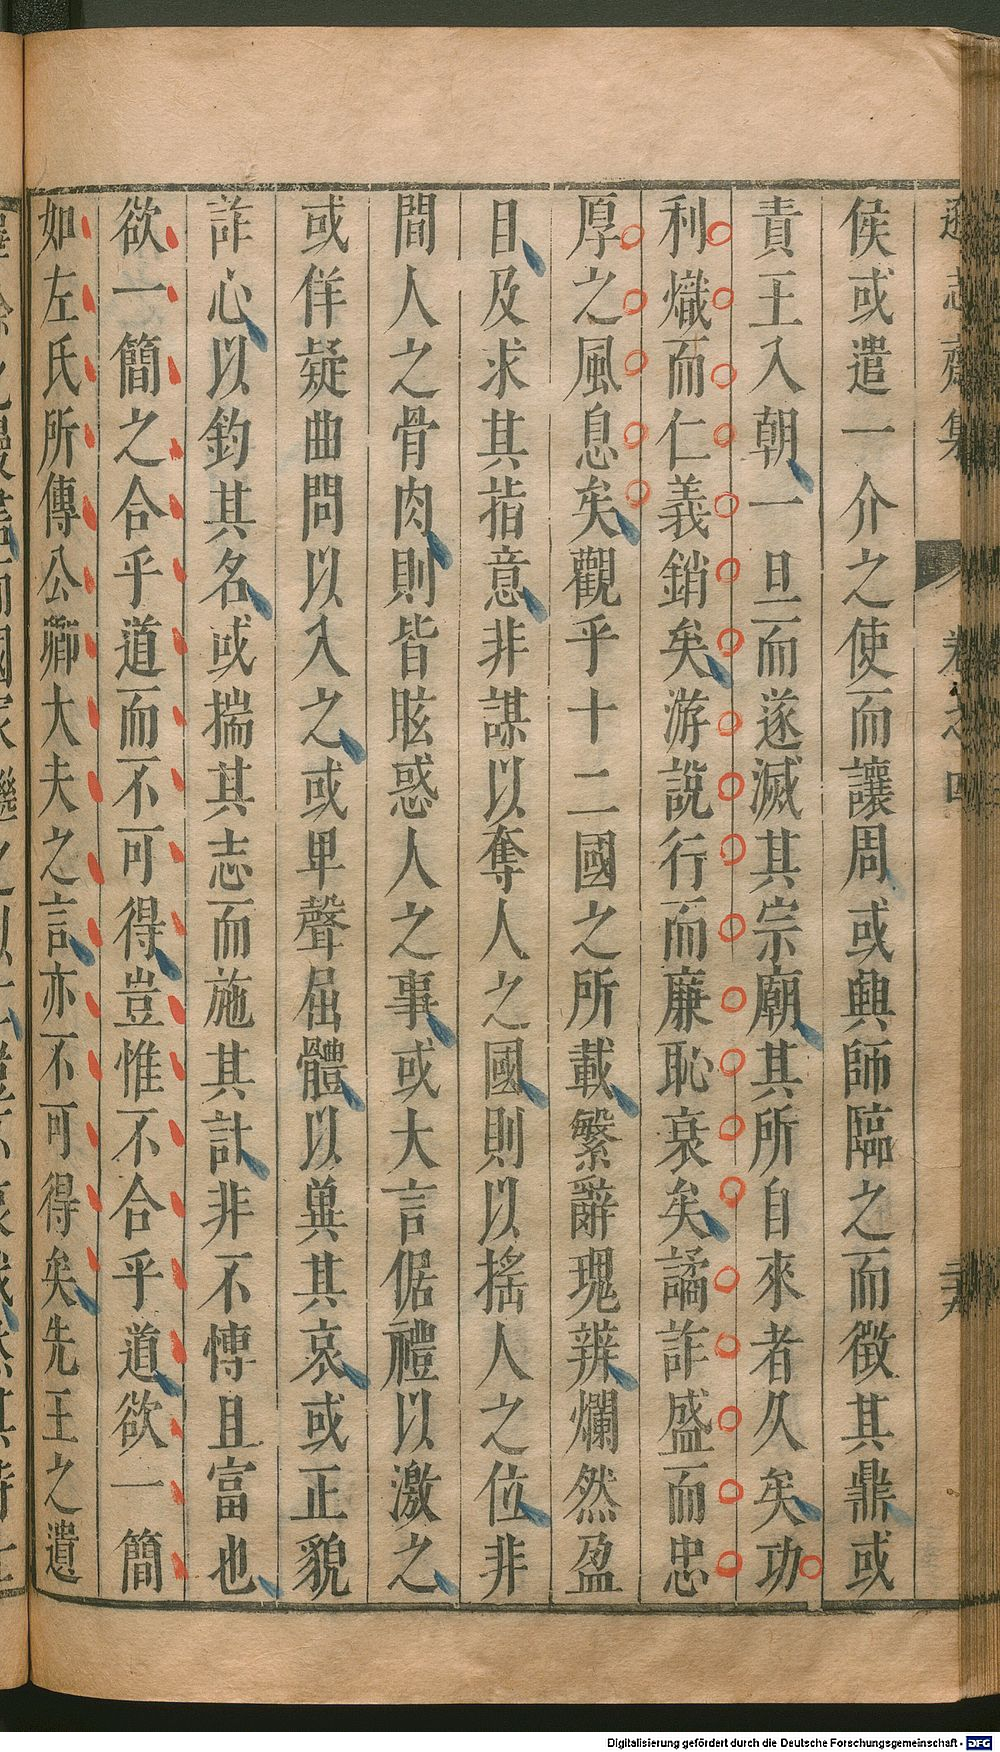 遜志齋集 卷之四 二十九
侯或遣一介之使而讓周或興師臨之而徵其鼎或
責王入朝一旦而遂滅其宗廟其所自來者久矣功
利熾而仁義銷矣游說行而廉恥衰矣譎詐盛而忠
厚之風息矣觀乎十二國之所載繁辭瑰辨爛然盈
目及求其指意非謀以奪人之國則以搖人之位非
間人之骨肉則皆眩惑人之事或大言倨禮以激之
或佯疑曲問以入之或卑聲屈體以冀其哀或正貌
詐心以釣其名或揣其志而施其計非不慱且富也
欲一簡之合乎道而不可得豈惟不合乎道欲一簡
如左氏所傳公卿大夫之言亦不可得矣先王之遺
Digitalisierung gefördert durch die Deutsche Forschungsgemeinschaft - DFG